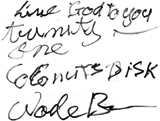 Live God to you
turnuty
one
Coconuts Disk
Wade B